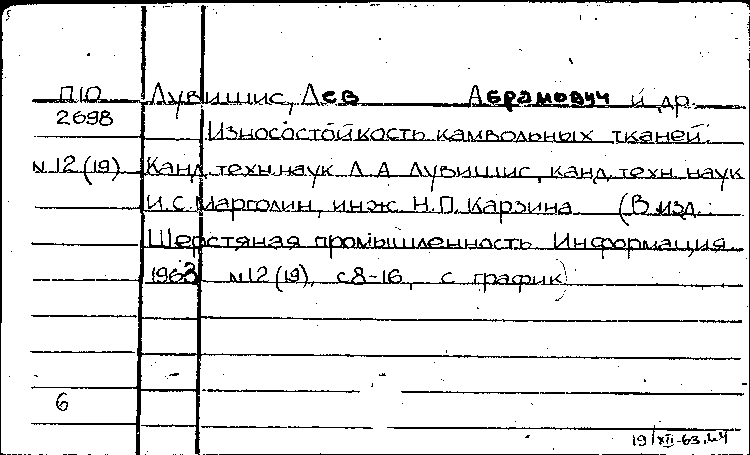 П10 Лувишис, Лев Абрамович и др.
2698 Износостойкость камвольных тканей.
N 12 (19) Канд. техн. наук Л. А. Лувишис, канд. техн. наук
И. С. Марголин, инж. Н. П. Карзина. (В изд.:
Шерстяная промышленность. Информация.
1963 N12 (19), с 8-16, с график)
6
19/XII-63.